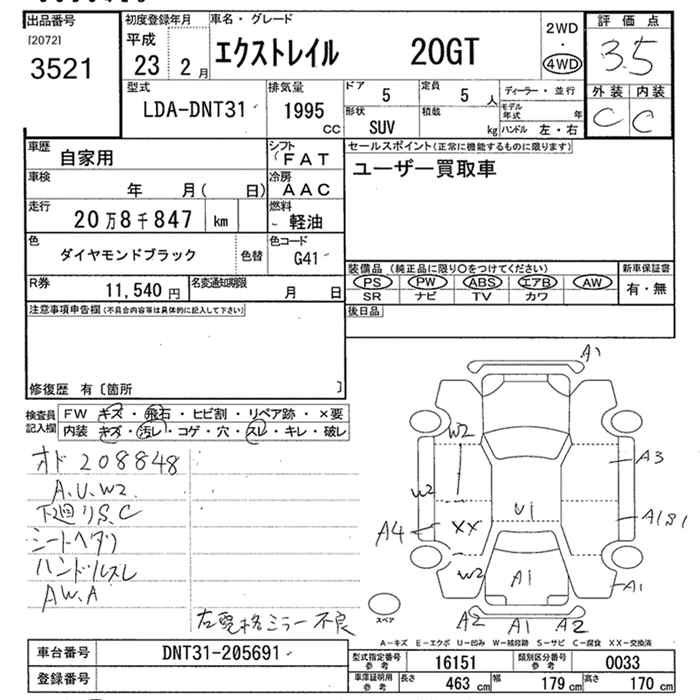 出品番号
[2072]
3521
初度登録年月
平成
23 2月
車名・グレード
エクストレイル 20GT
2WD
・
4WD
評価点
3.5
外装 内装
C C
型式
LDA-DNT31
排気量
1995
CC
ドア
5
定員
5 人
形状
SUV
積載
kg
ディーラー・並行
モデル年式 年
ハンドル 左・右
車歴
自家用
シフト
FAT
車検
年 月( 日)
冷房
AAC
走行
20万8千847 km
燃料
軽油
色
ダイヤモンドブラック
色替
色コード
G41
R券
11,540 円
名変通知期限
月 日
セールスポイント(正常に機能するものに限ります)
ユーザー買取車
装備品 (純正品に限り〇をつけてください)
PS PW ABS エアB AW
SR ナビ TV カワ
新車保証書
有・無
後日品
注意事項申告欄(不具合内容等は具体的に記入して下さい)
修復歴 有〔箇所 〕
検査員
記入欄
FW キズ・飛石・ヒビ割・リペア跡・×要
内装 キズ・汚レ・コゲ・穴・スレ・キレ・破レ
オド 208848
A.U.W2
下廻りS.C
シートヘタリ
ハンドルスレ
AW.A
左電格ミラー不良
A1
W2
A3
W2
U1
A4
XX
A1S1
W2
A1
A1
スペア
A2 A1 A2
A-キズ E-エクボ U-凹み W-補修跡 S-サビ C-腐食 XX-交換済
車台番号
DNT31-205691
登録番号
型式指定番号
参考
16151
類別区分番号
参考
0033
車庫証明用
参考
長さ 463 cm 幅 179 cm 高さ 170 cm